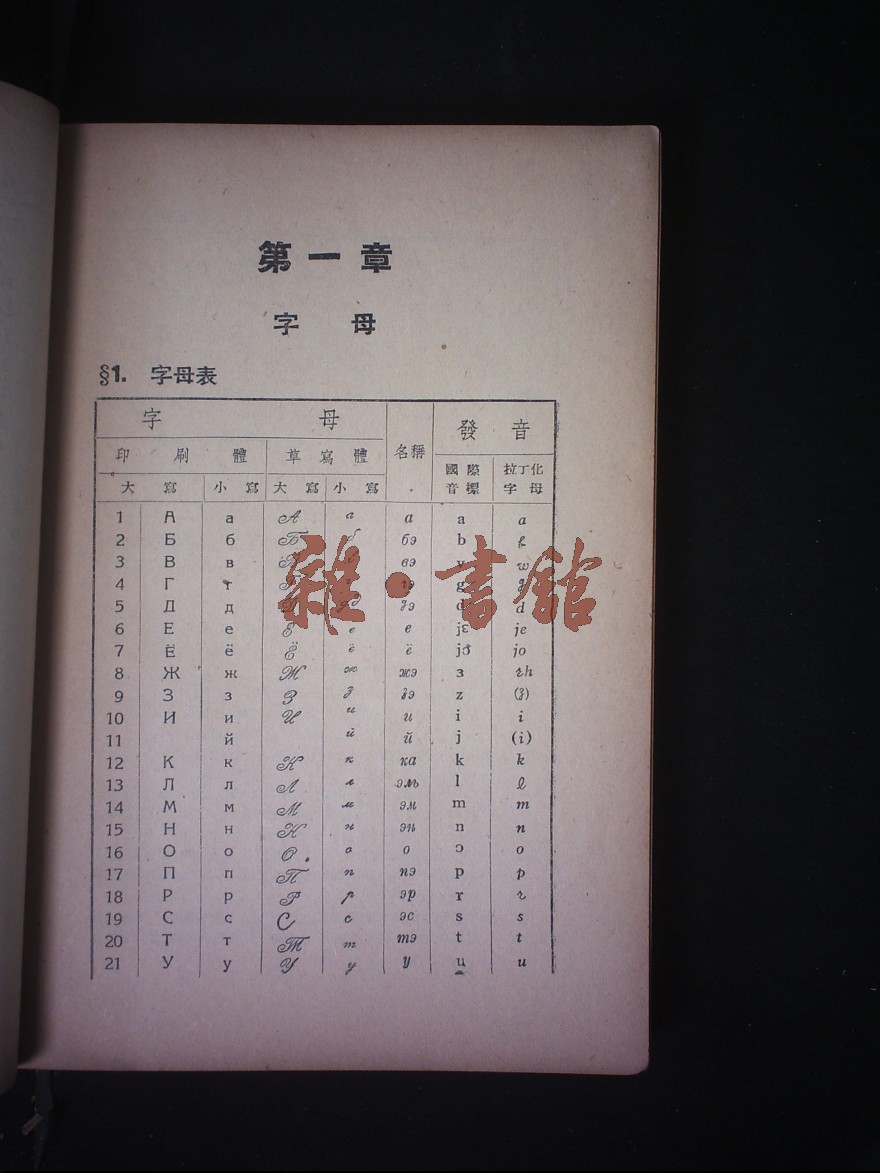 第一章
字母
§1. 字母表
字母 名稱 發音
印刷體 草寫體 國際音標 拉丁化字母
大寫 小寫 大寫 小寫
1 А а А а а a a
2 Б б Б б бэ b
3 В в вэ w
4 Г г g
5 Д д дэ d d
6 Е е Е е е jɛ je
7 Ё ё Ё ё ё jɔ jo
8 Ж ж Ж ж жэ ʒ rh
9 З з З з зэ z (z)
10 И и И и и i i
11 й й й j (i)
12 К к К к ка k k
13 Л л Л л эль l l
14 М м М м эм m m
15 Н н Н н эн n n
16 О о О о о ɔ o
17 П п П п пэ p p
18 Р р Р р эр r r
19 С с С с эс s s
20 Т т Т т тэ t t
21 У у У у у u u
雜·書館